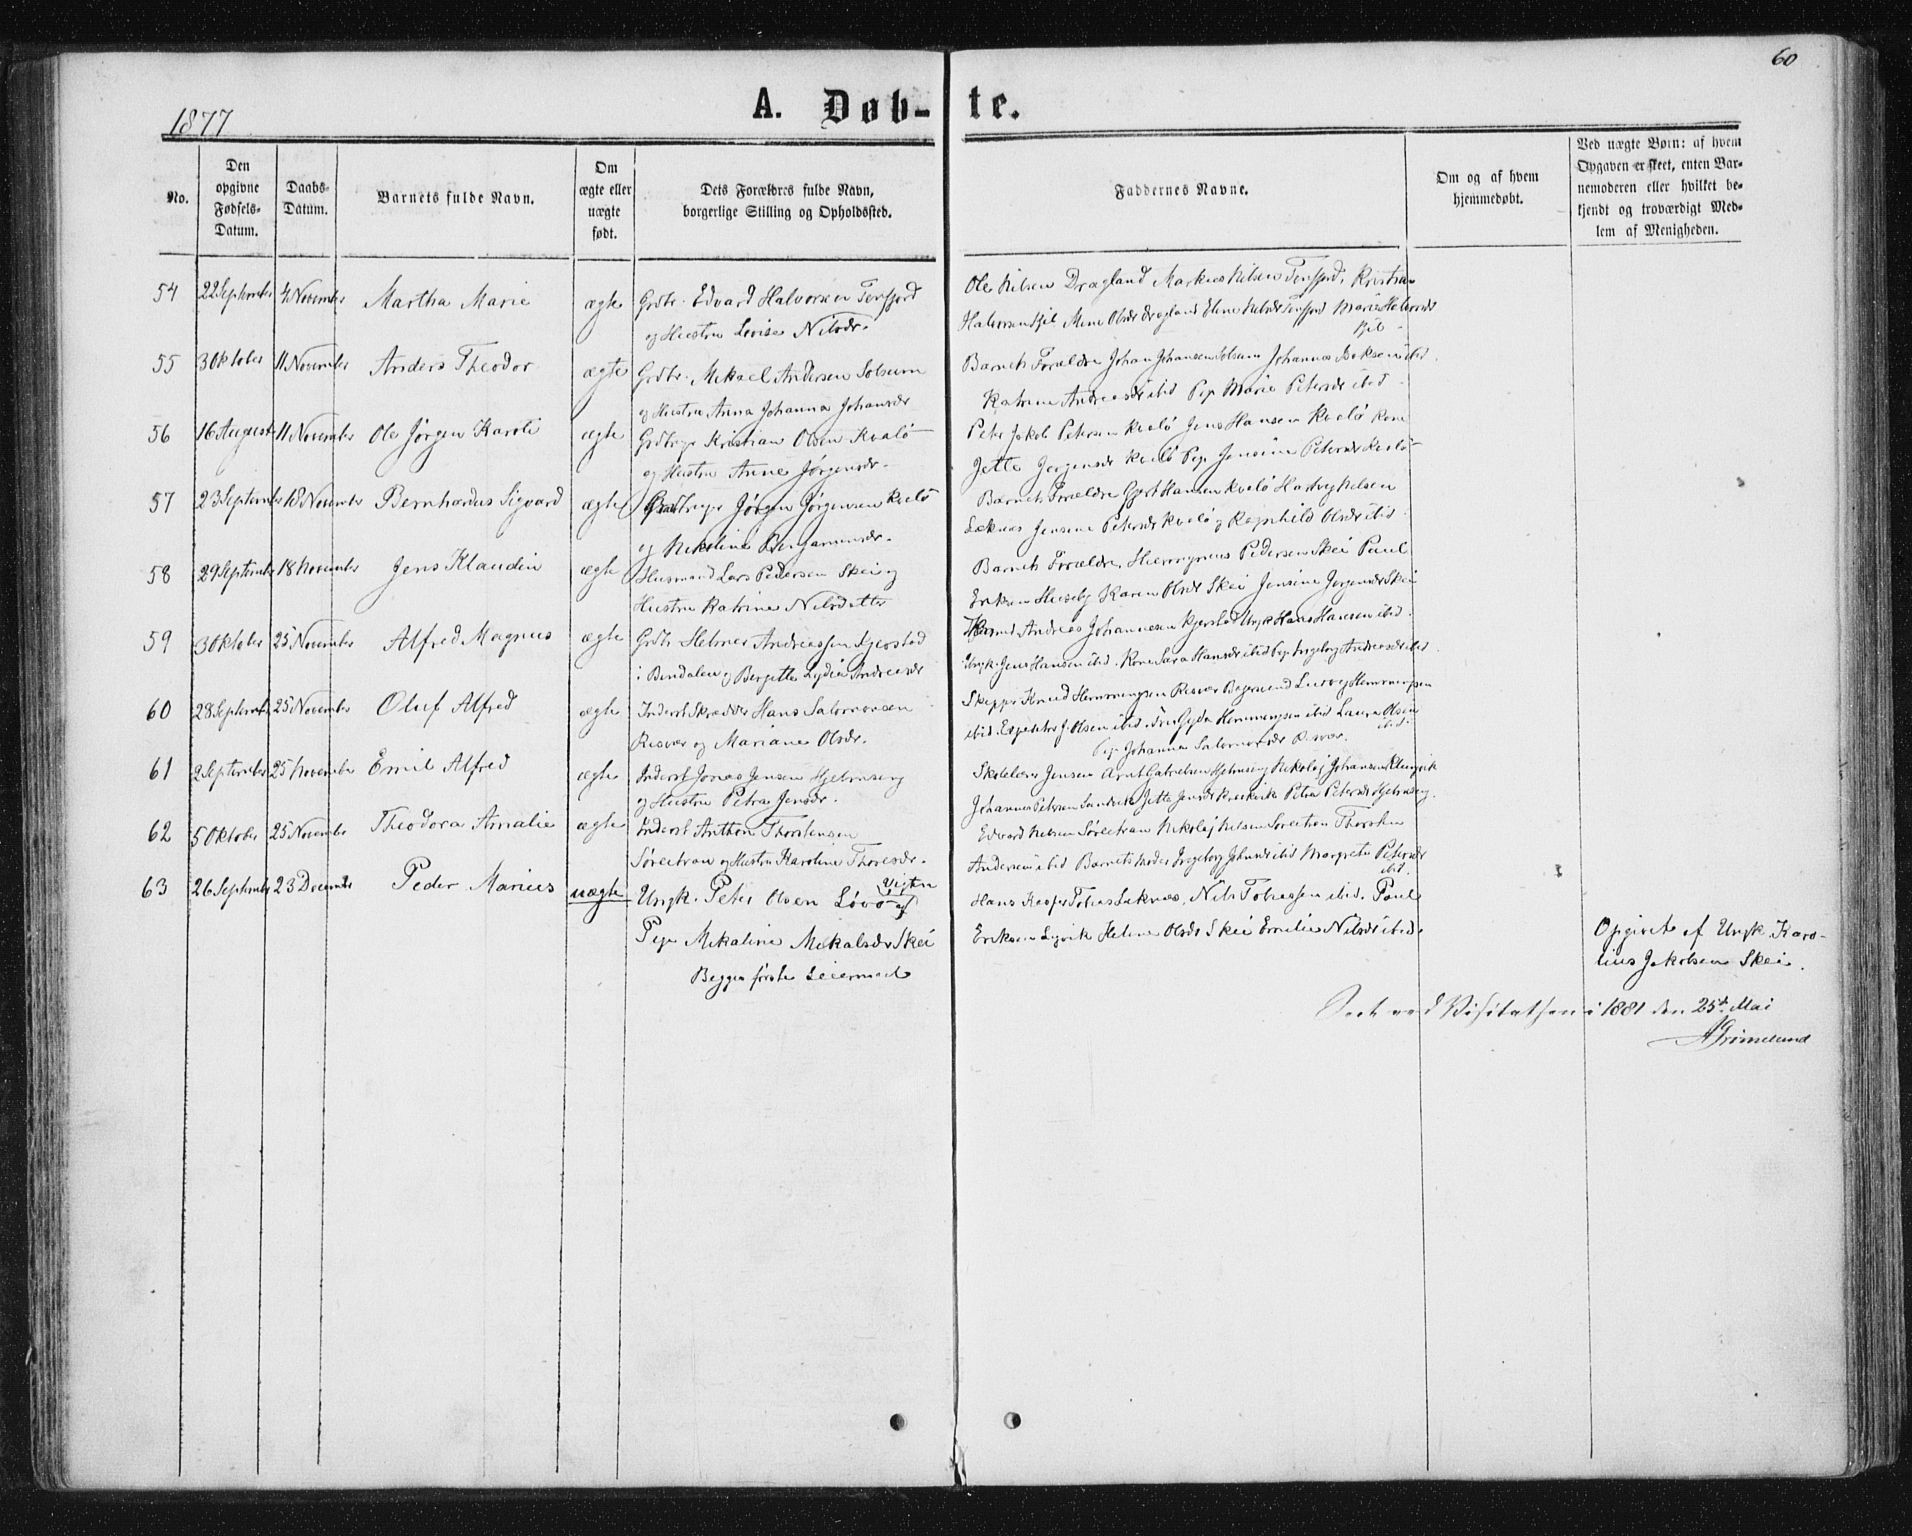 60
1877
A. Døb-
te.
No.
Den opgivne Fødsels-Datum.
Daabs-Datum.
Barnets fulde Navn.
Om ægte eller uægte født.
Dets Forældres fulde Navn, borgerlige Stilling og Opholdssted.
Faddernes Navne.
Om og af hvem hjemmedøbt.
Ved uægte Børn: af hvem Opgaven er skeet, enten Barnemoderen eller hvilket bekjendt og troværdigt Medlem af Menigheden.
54 22 September 4 November Martha Marie ægte Grdbr. Edvard Halvorsen Terfjord
og Hustru Lovise Nilsdr.
Ole Nilsen Dragland Markus Nilsen
Halvorsen Mine Olsdr Dragland Eline Nilsdr Marie Halvorsdr
55 3 Oktober 11 November Anders Theodor ægte Grdbr. Mikael Andersen Solsum
og Hustru Anna Johanna Johansdr
Barnets Forældre Johan Johansen Solsum Johannes ibid.
Katrine Andreasdr ibid Pige Marie Petersdr ibid.
56 16 August 11 November Ole Jørgen Karoli ægte Kristian Olsen Kvalø
og Hustru Anne Jørgensdr.
Peter Jakob Petersen Kvalø Jens Hansen Kvalø Kone
Jette Jørgensdr Kvalø Pige Jensine Petersdr Kvalø
57 23 September 18 November Bernhardus Sigvard ægte Jørgen Jørgensen Kvalø
og Nikoline Benjaminsdr.
Barnets Forældre Gjert Hansen Kvalø Hartvig Nilsen
Leknes Jensine Petersdr Kvalø og Ragnhild Olsdr ibid.
58 29 September 18 November Jens Klaudin ægte Husmand Lars Pedersen Skei og
Hustru Katrine Nilsdatter
Barnets Forældre, Hieronymus Pedersen Skei Paul
Eriksen Huseby Karen Olsdr Skei Jensine Jørgensdr Skei
59 3 Oktober 25 November Alfred Magnus ægte Grdbr Helmer Andreassen Kjerstad
i Bindalen og Bergitte Lydia Andreasdr
Andreas Johannesen Kjerstad Ungk Hans Hansen ibid.
Ungk. Jens Hansen ibid. Kone Sara Hansdr ibid Pige Ingeborg Andreasdr ibid.
60 28 September 25 November Oluf Alfred ægte Inderst Skrædder Hans Salomonsen
Risvær og Mariane Olsdr.
Skipper Knud Hemmingsen Risvær Ludvig Hemmingsen
ibid. Expeditør J. Olsen ibid. Fru Gyda Hemmingsen ibid Laura Olsen
ibid.
Pige Johanna Salomonsdr Risvær.
61 2 September 25 November Emil Alfred ægte Inderst Jonas Jensen
og Hustru Petra Jensdr.
Skolelærer Jensen Arnt Gabrielsen Nikolaj Johansen
Johannes Petersen Sandvik Jette Jensdr Petra Petersdr
62 5 Oktober 25 November Theodora Amalie ægte Inderst Anthon Thorstensen
Sørleitran og Hustru Karoline Thoresdr.
Edvard Nilsen Sørleitran Nikolaj Nilsen Sørleitran Thorsten
Andersen ibid Barnets Moder Ingeborg Johnsdr ibid Margrete Petersdr
ibid.
63 26 September 23 December Peder Marius uægte Ungk. Peter Olsen Løvø Vigten
og
Pige Mikaline Mikalsdr Skei
Begges første Leiermaal
Hans Kasper Tobias Leknes, Nils Tobiassen ibid. Paul
Eriksen Helene Olsdr Skei Emilie Nilsdr ibid.
Opgivet af Ungk Karo-
lius Jakobsen Skei.
Seet ved Visitatsen i 1881 den 25de Mai
AGrimelund